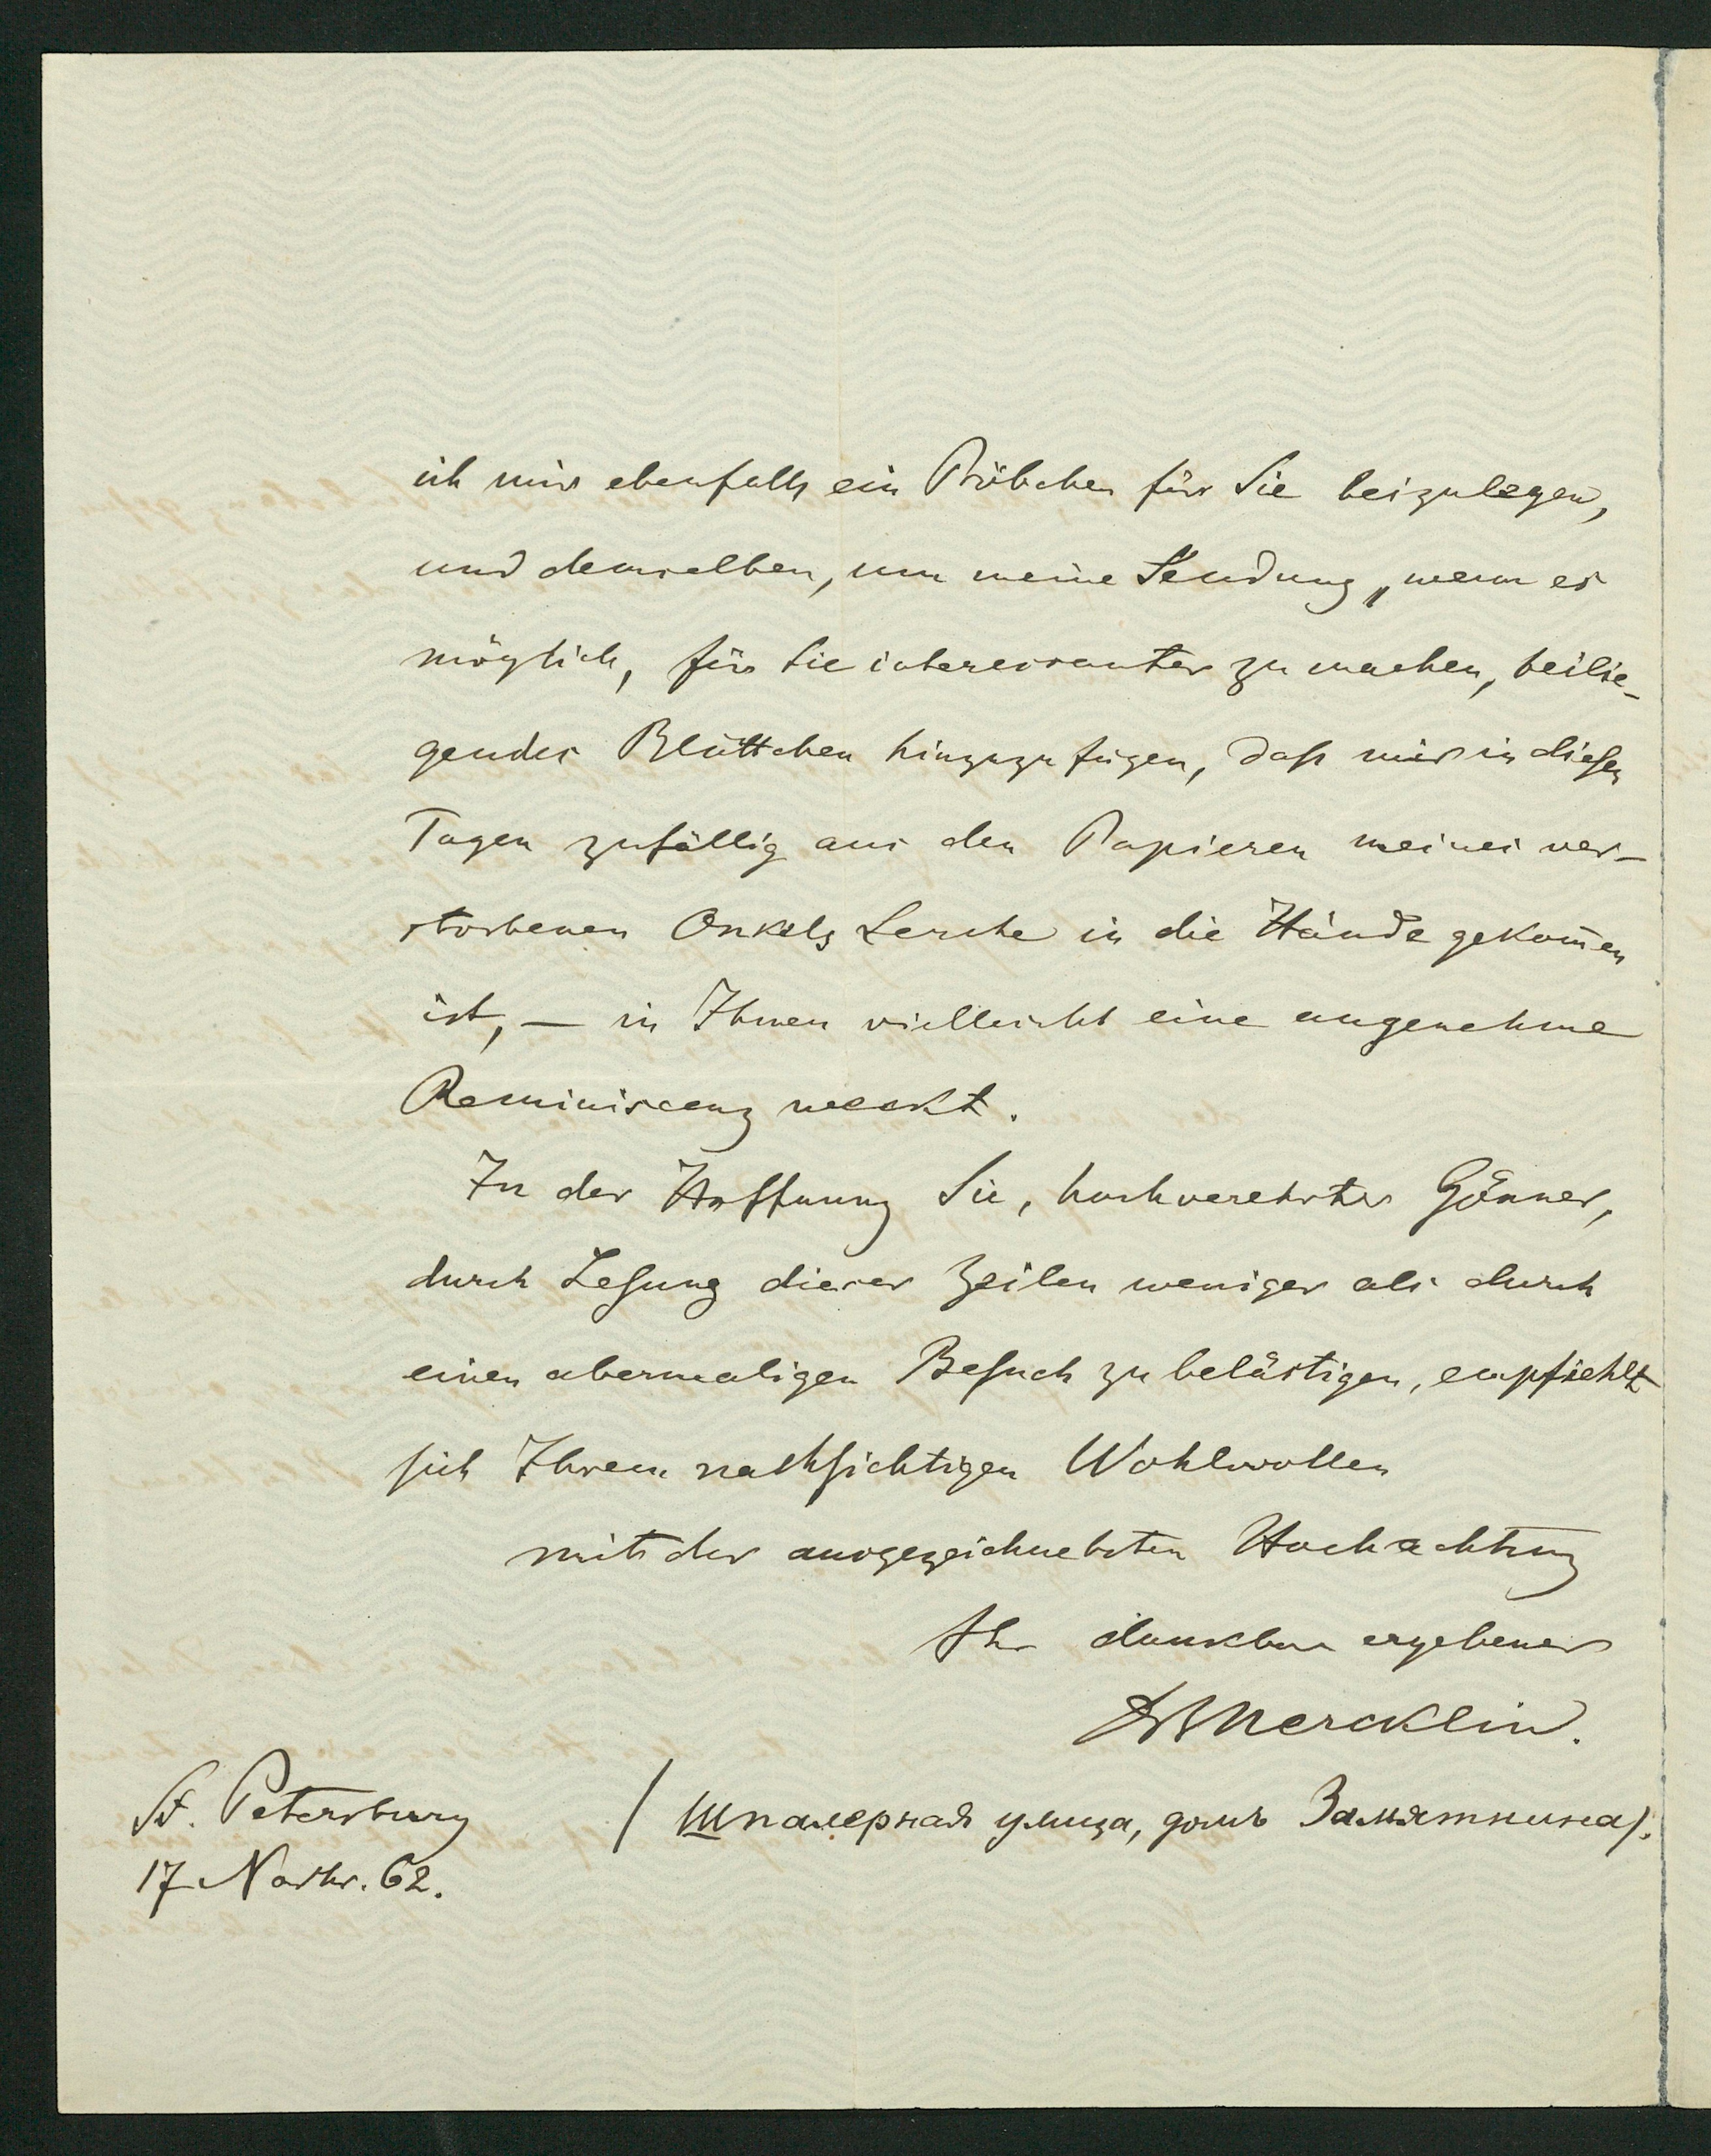 ich mir ebenfalls ein Pröbchen für Sie beizulegen,
und demselben, um meine Sendung, wenn es
möglich, für Sie interessanter zu machen, beilie-
gendes Blättchen hinzuzufügen, daß mir in diesen
Tagen zufällig aus den Papieren meines ver-
storbenen Onkels Lerche in die Hände gekom̅en
ist, — in Ihnen vielleicht eine angenehme
Reminiscenz weckt.
In der Hoffnung Sie, hochverehrter Gönner,
durch Lesung dieser Zeilen weniger als durch
einen abermaligen Besuch zu belästigen, empfiehlt
sich Ihrem nachsichtigen Wohlwollen
mit der ausgezeichnetsten Hochachtung
Ihr dankbar ergebener
Mercklin.
St. Petersburg
(Шпалерная улица, домъ Замятнина).
17 Novbr. 62.